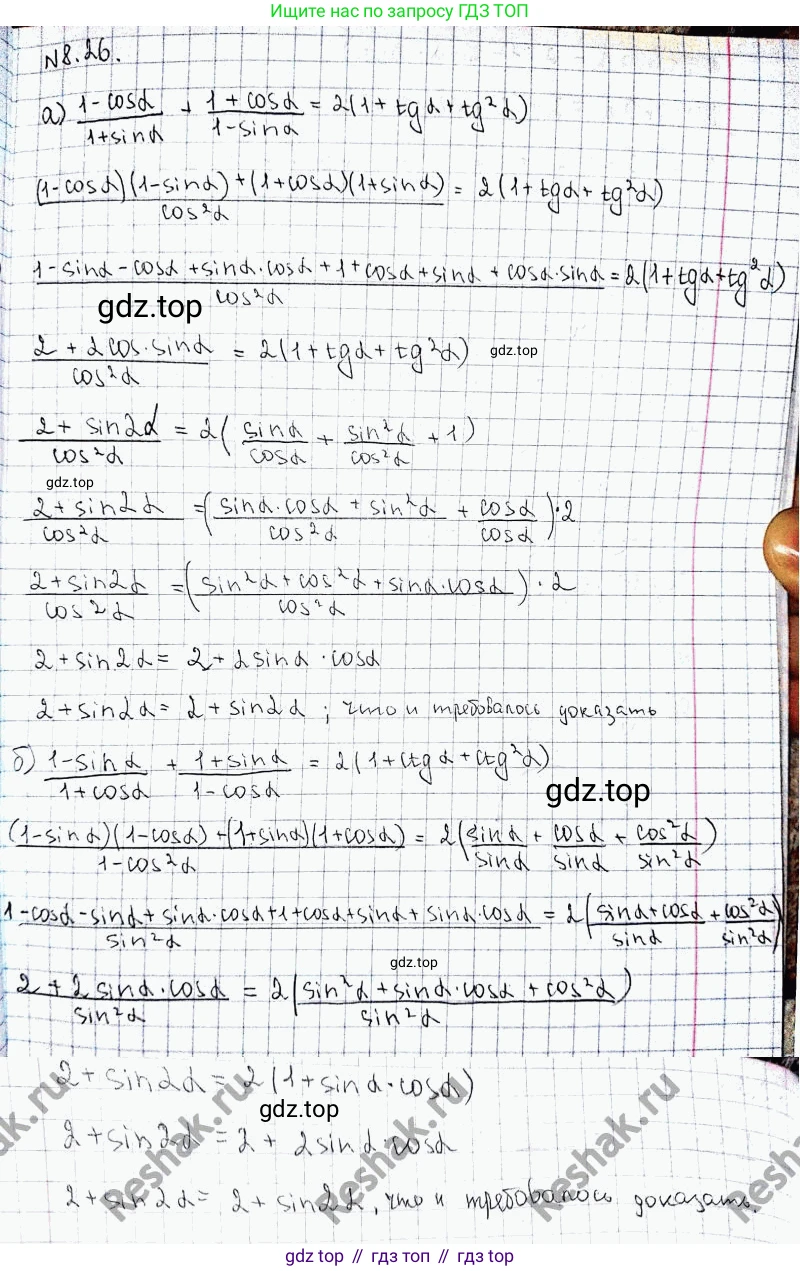 Ищите нас по запросу ГДЗ ТОП
N8.26.
а) (1-cosα)/(1+sinα) + (1+cosα)/(1-sinα) = 2(1+tgα+tg²α)
((1-cosα)(1-sinα)+(1+cosα)(1+sinα))/(cos²α) = 2(1+tgα+tg²α)
(1-sinα-cosα+sinα·cosα+1+cosα+sinα+cosα·sinα)/(cos²α) = 2(1+tgα+tg²α)
gdz.top
(2+2cos·sinα)/(cos²α) = 2(1+tgα+tg²α)
gdz.top
(2+sin2α)/(cos²α) = 2(sinα/cosα + sin²α/cos²α + 1)
gdz.top
(2+sin2α)/(cos²α) = ((sinα·cosα+sin²α)/(cos²α) + cosα/cosα)·2
(2+sin2α)/(cos²α) = ((sin²α+cos²α+sinα·cosα)/(cos²α))·2
2+sin2α = 2+2sinα·cosα
2+sin2α = 2+sin2α; что и требовалось доказать
б) (1-sinα)/(1+cosα) + (1+sinα)/(1-cosα) = 2(1+ctgα+ctg²α)
gdz.top
((1-sinα)(1-cosα)+(1+sinα)(1+cosα))/(1-cos²α) = 2(sinα/sinα + cosα/sinα + cos²α/sin²α)
(1-cosα-sinα+sinα·cosα+1+cosα+sinα+sinα·cosα)/(sin²α) = 2((sinα+cosα)/(sinα) + cos²α/sin²α)
gdz.top
(2+2sinα·cosα)/(sin²α) = 2((sin²α+sinα·cosα+cos²α)/(sin²α))
2+sin2α = 2(1+sinα·cosα)
gdz.top
2+sin2α = 2+2sinα·cosα
2+sin2α = 2+sin2α, что и требовалось доказать.
Reshak.ru
Reshak.ru
Reshak.ru
gdz top // гдз топ // gdz top